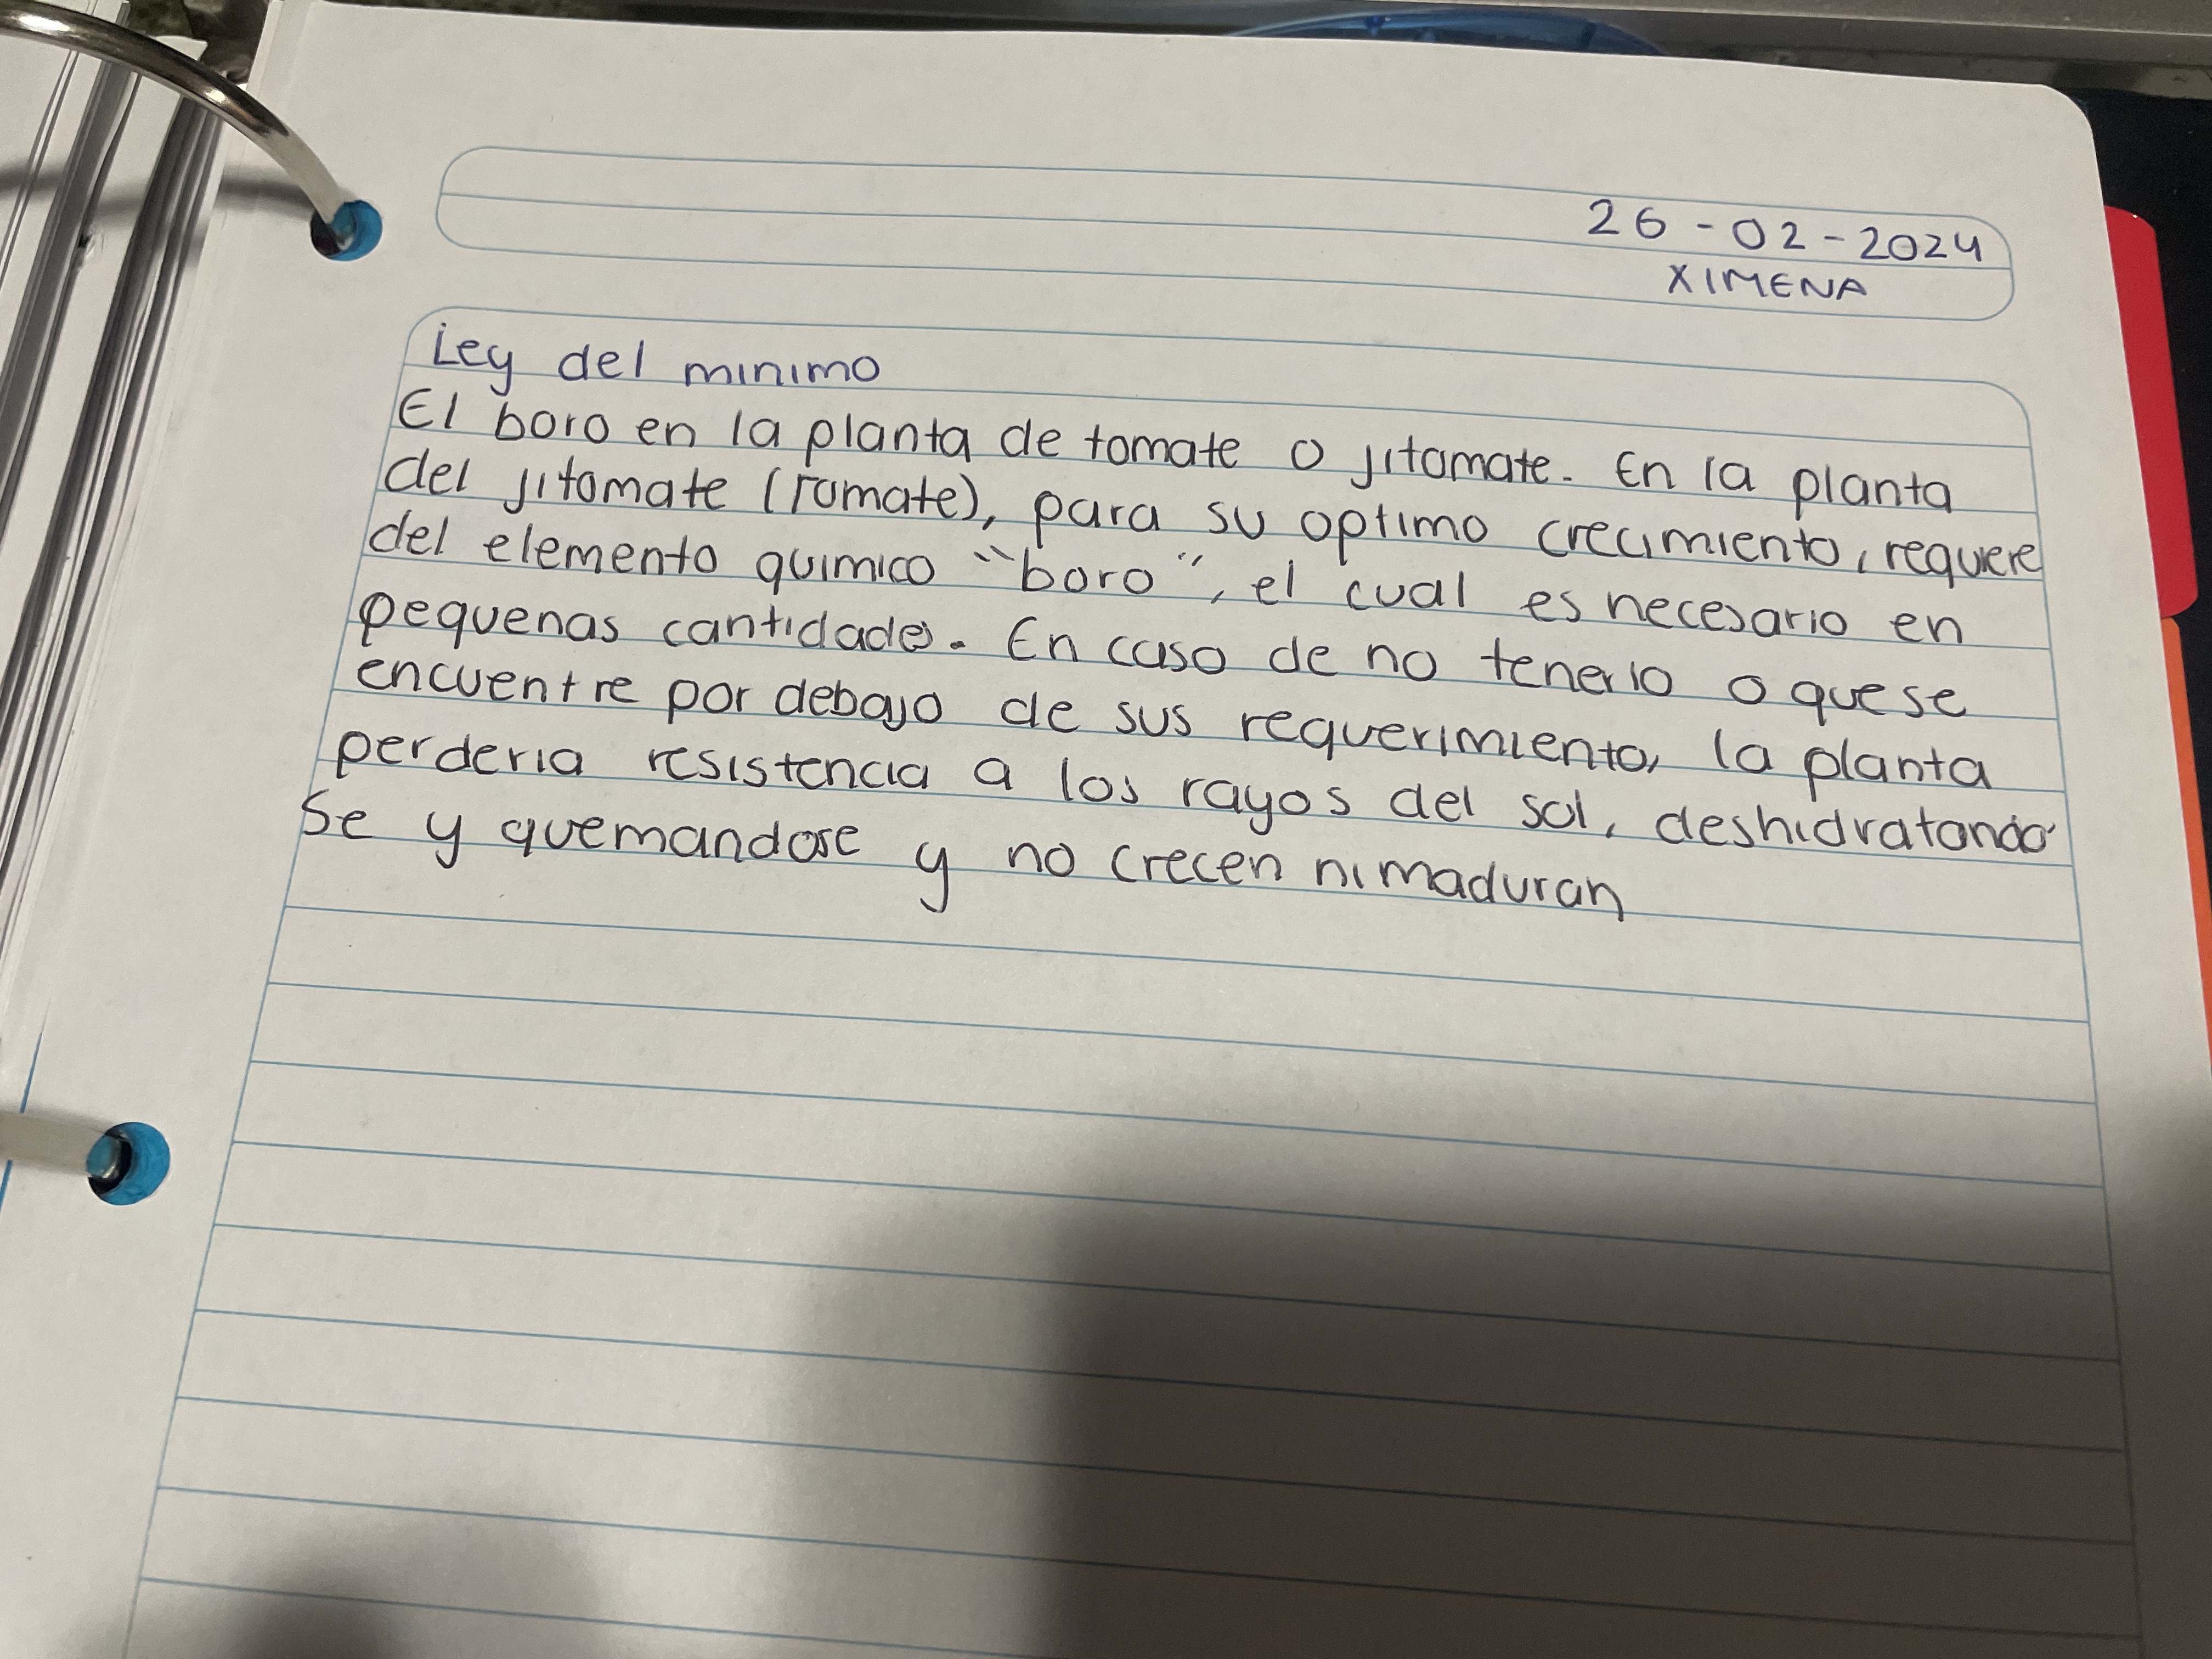 26-02-2024
XIMENA
Ley del minimo
El boro en la planta de tomate o jitomate. En la planta
del jitomate (Tomate), para su optimo crecimiento, requiere
del elemento quimico "boro", el cual es necesario en
pequenas cantidades. En caso de no tenerlo o que se
encuentre por debajo de sus requerimiento, la planta
perderia resistencia a los rayos del sol, deshidratando
se y quemandose y no crecen ni maduran